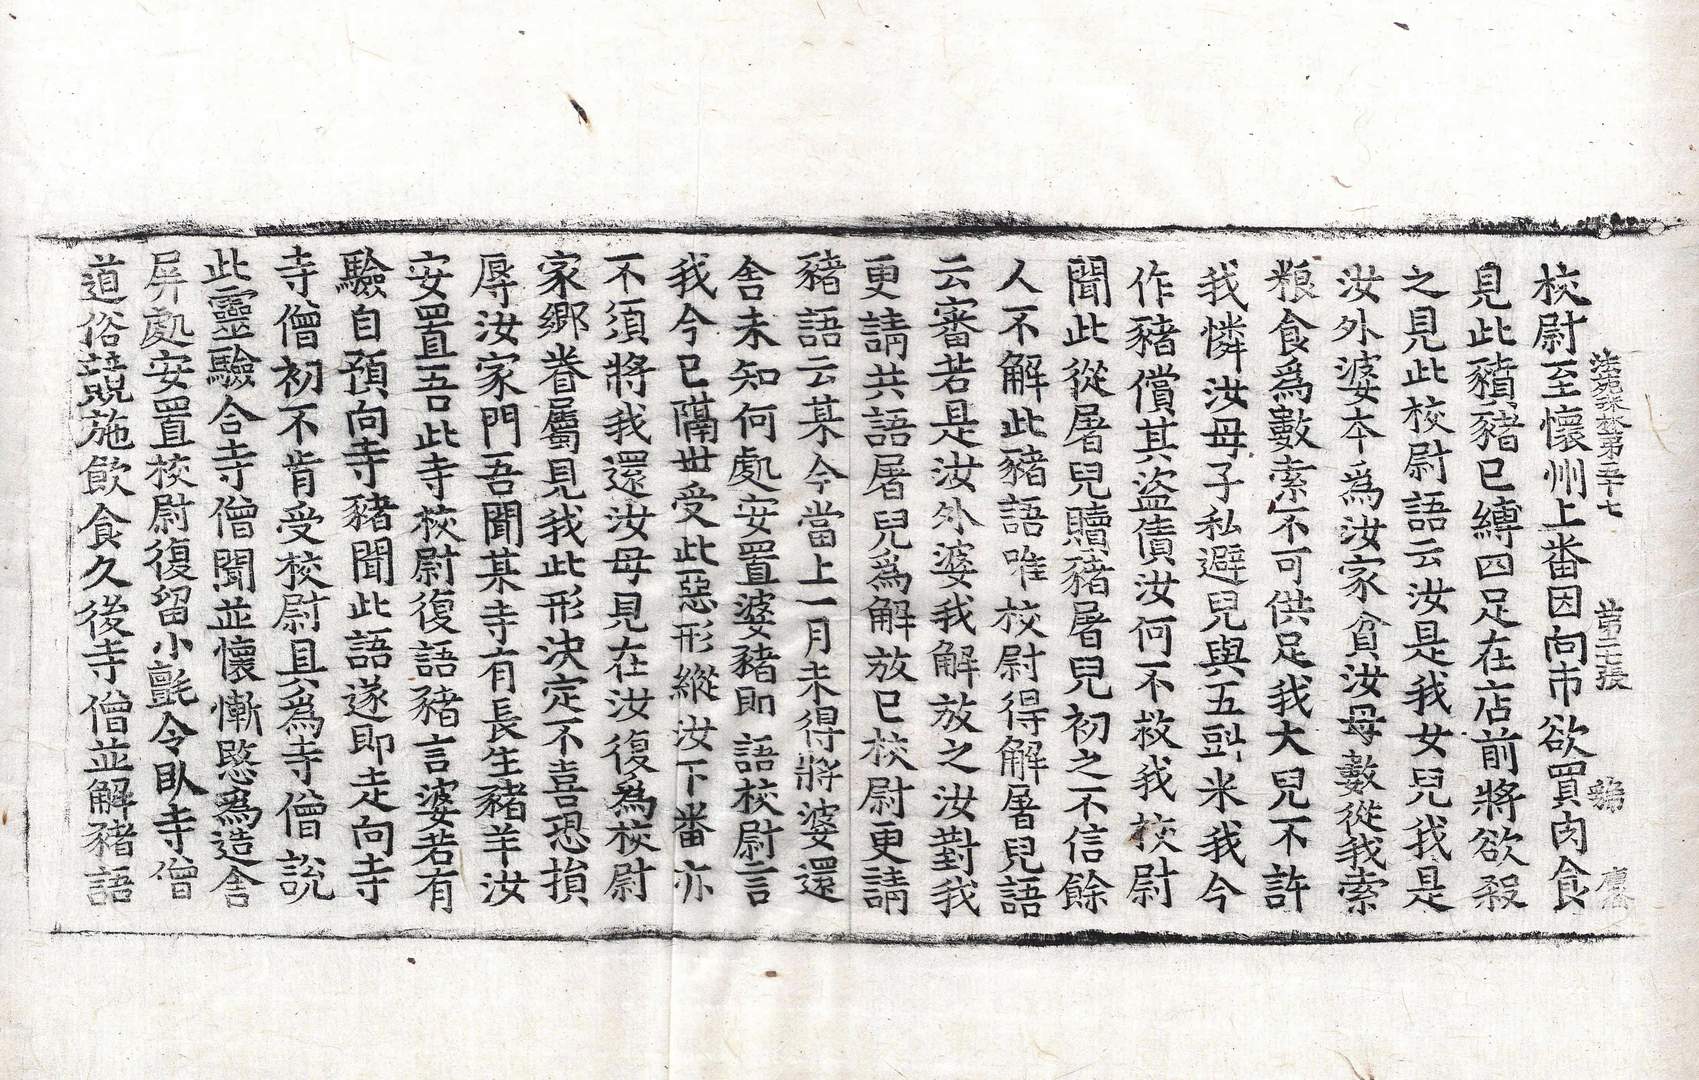 法苑珠林第五十七 第二十張 鷄 廪
校尉至懷州上番因向市欲買肉食
見此豶豬已縛四足在店前將欲殺
之見此校尉語云汝是我女兒我是
汝外婆本爲汝家貧汝母數從我索
粮食爲數索不可供足我大兒不許
我憐汝母子私避兒與五㪷米我今
作豬償其盜債汝何不救我校尉
聞此從屠兒贖豬屠兒初之不信餘
人不解此豬語唯校尉得解屠兒語
云審若是汝外婆我解放之汝對我
更請共語屠兒爲解放已校尉更請
豬語云某今當上一月未得將婆還
舍未知何處安置婆豬即語校尉言
我今已隔世受此惡形縱汝下番亦
不須將我還汝母見在汝復爲校尉
家鄉眷屬見我此形決定不喜恐損
辱汝家門吾聞某寺有長生豬羊汝
安置吾此寺校尉復語豬言婆若有
驗自預向寺豬聞此語遂即走向寺
寺僧初不肯受校尉具爲寺僧說
此靈驗合寺僧聞並懷慚愍爲造舍
屏處安置校尉復留小氈令臥寺僧
道俗競施飲食久後寺僧並解豬語